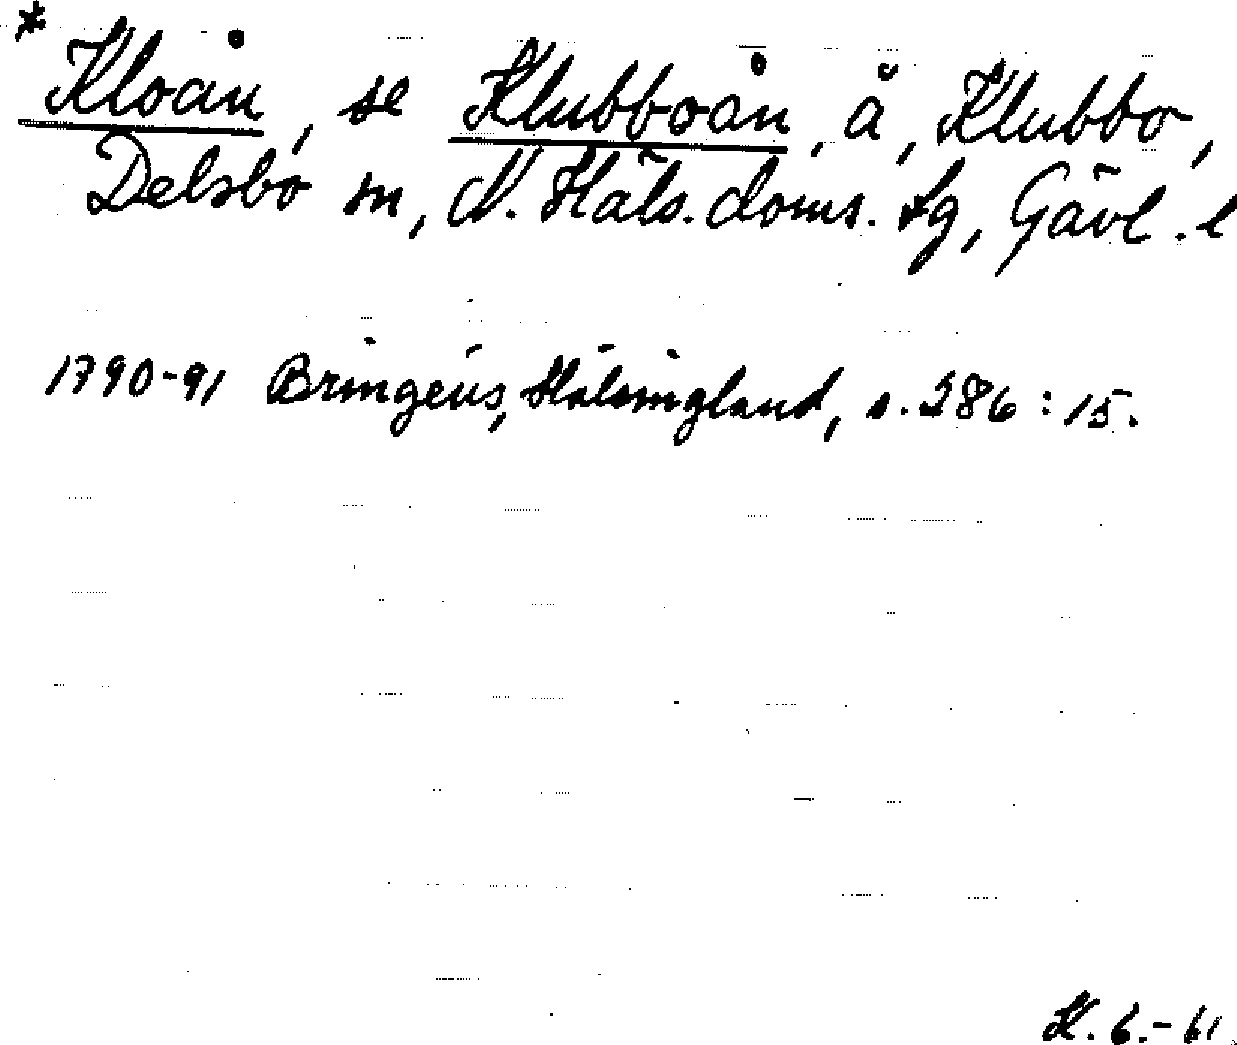 * Kloån, se Klubboån, å, Klubbo,
Delsbo sn, N. Häls. doms. tg, Gävl. l
1790-91 Bringéus, Hälsingland, s. 286:15.
St. 6.-61.